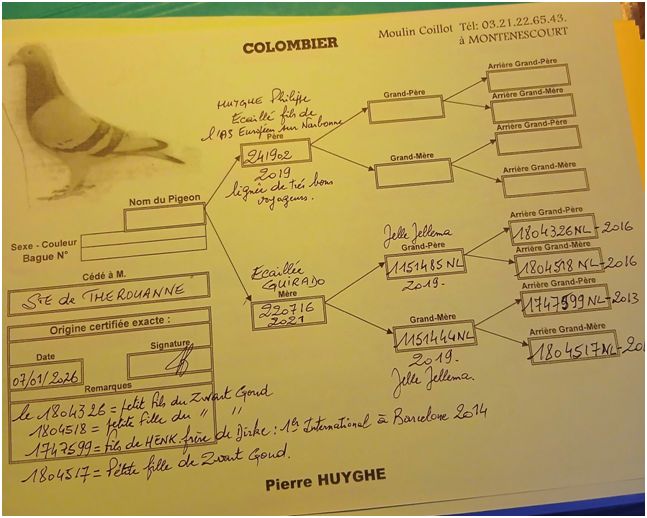 COLOMBIER
Moulin Coillot Tél: 03.21.22.65.43.
à MONTENESCOURT
HUYGHE Philippe
Ecaillé fils de
l'AS Européen sur Narbonne
Père
241902
2019
lignée de très bons
voyageurs.
Grand-Père
Grand-Mère
Arrière Grand-Père
Arrière Grand-Mère
Arrière Grand-Père
Arrière Grand-Mère
Nom du Pigeon
Sexe - Couleur
Bague N°
Cédé à M.
Sté de THEROUANNE
Origine certifiée exacte :
Date
Signature
07/01/2026
Ecaillée
GUIRADO
Mère
220716
2021
Jelle Jellema
Grand-Père
1151485 NL
2019.
Grand-Mère
1151444 NL
2019.
Jelle Jellema.
Arrière Grand-Père
1804326 NL - 2016
Arrière Grand-Mère
1804518 NL - 2016
Arrière Grand-Père
1747599 NL - 2013
Arrière Grand-Mère
1804517 NL - 20
Remarques
le 1804326 = petit fils du Zwart Goud
1804518 = petite fille du " "
1747599 = fils de HENK. frère de Dirke : 1er International à Barcelone 2014
1804517 = Petite fille de Zwart Goud.
Pierre HUYGHE